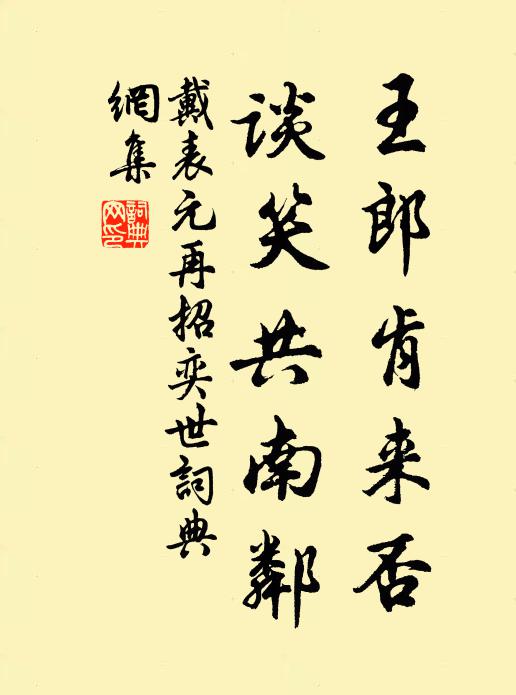 王郎肯来否
談笑共南鄰
戴表元再招奕世詞典
網集
詞典網印